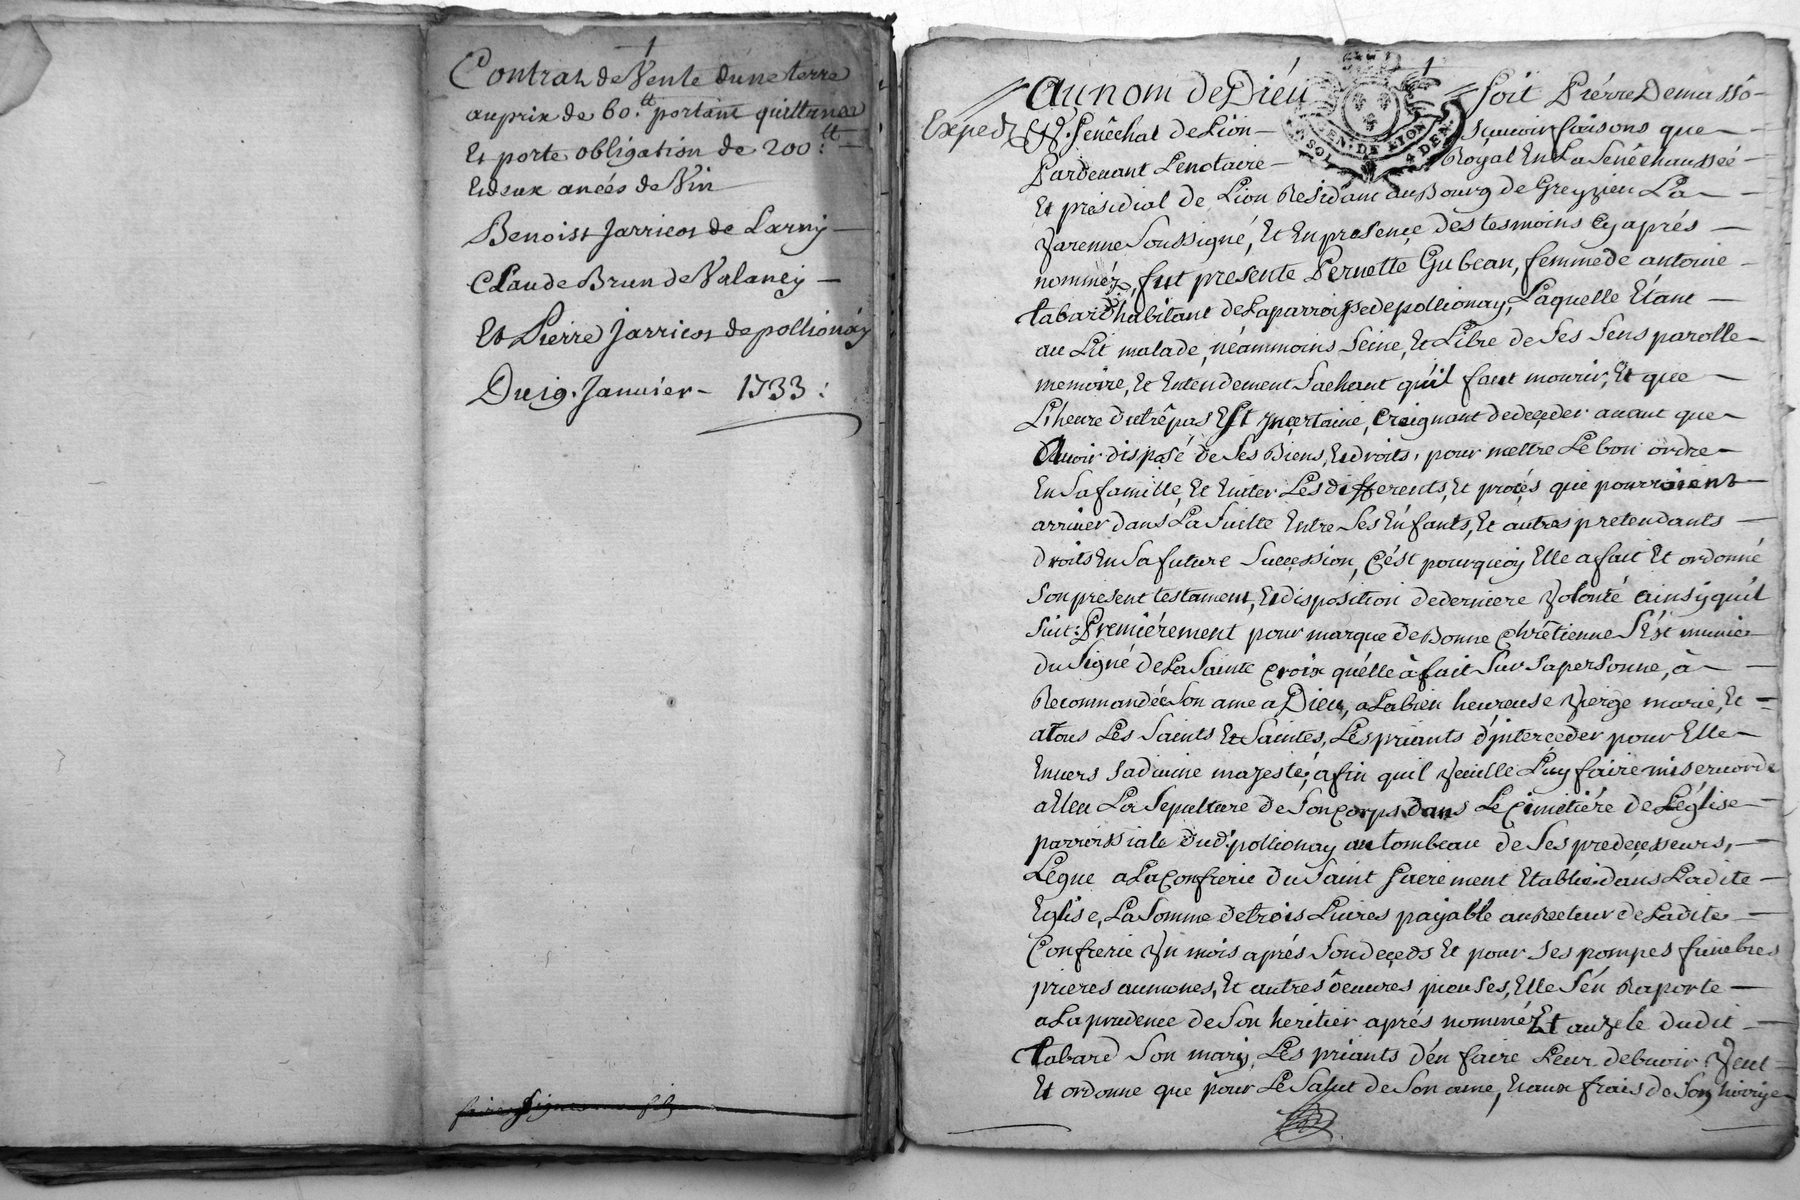 Contrat de Vente dune terre
au prix de 60.tt portant quittance
Et porte obligation de 200:tt
Et deux anées de Vin
Benoist Jarricot de Larny
Claude Brun de Valancy
Et Pierre Jarricot de pollionay
Du 19. Janvier - 1733:
faire signer
1
Au nom de Dieu Soit Piérre Demassô-
Exped
Senéchal de Lion Sçavoir faisons que
GEN. DE LYON
SOL 4 DEN
Pardevant Le notaire Royal En La Senéchaussée
Et présidial de Lion Residant au Bourg de Greyzieu La
Varenne Soussigné, Et En presençe des tesmoins Cy aprés
nommez, fut presente Pernette Gubean, femme de antoine
tabard habitant de La parroisse de pollionay, Laquelle Étant
au Lit malade, néammoins Seine, Et Libre de Ses Sens parolle
memoire, Et Entendement Sachant qu'il faut mourir, Et que
L'heure du trêpas Est Inçertaine, Craignant de deçeder avant que
D'avoir disposé de Ses Biens, Et droits, pour mettre Le bon ordre
En Sa famille, Et Eviter Les differents, Et procés que pourroient
arriver dans La Suitte Entre Ses Enfants, Et autres pretendants
droits En Sa future Sucçession, C'ést pourquoy Elle a fait Et ordonné
Son present testament, Et disposition de derniere Volonté ainsy qu'il
Suit: Premiérement pour marque de Bonne Chrêtienne S'ést munie
du Signé de La Sainte Croix qu'elle à fait Sur Sa personne, à
Recommandée Son ame a Dieu, a La bien heureuse Vierge marie, Et
a tous Les Saints Et Saintes, Les priants d'interçéder pour Elle
Envers Sa divine majesté, afin qu'il Veuille Luy faire misericorde
a Eleu La Sepulture de Son Corps dans Le Cimetiére de L'église
parroissiale dud. pollionay au tombeau de Ses predeçesseurs,
Légue a La Confrerie du Saint Sacrement Etablie dans Ladite
Eglise, La Somme de trois Livres payable au Recteur de Ladite
Confrerie Un mois aprés Son deçeds Et pour Ses pompes funebres
prieres aumones, Et autres oeuvres pieuses, Elle S'én Raporte
a La prudence de Son heritier aprés nommé Et au Zele dudit
tabard Son mary, Les priants d'én faire Leur debvoir Veut
Et ordonne que pour Le Salut de Son ame, Et aux frais de Son hoirie